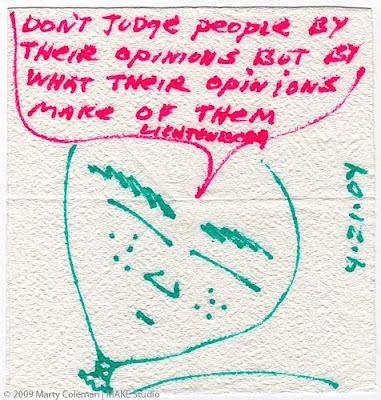 DON'T JUDGE PEOPLE BY
THEIR OPINIONS BUT BY
WHAT THEIR OPINIONS
MAKE OF THEM
LICHTENBERG
4·21·04
© 2009 Marty Coleman | MAKE Studio